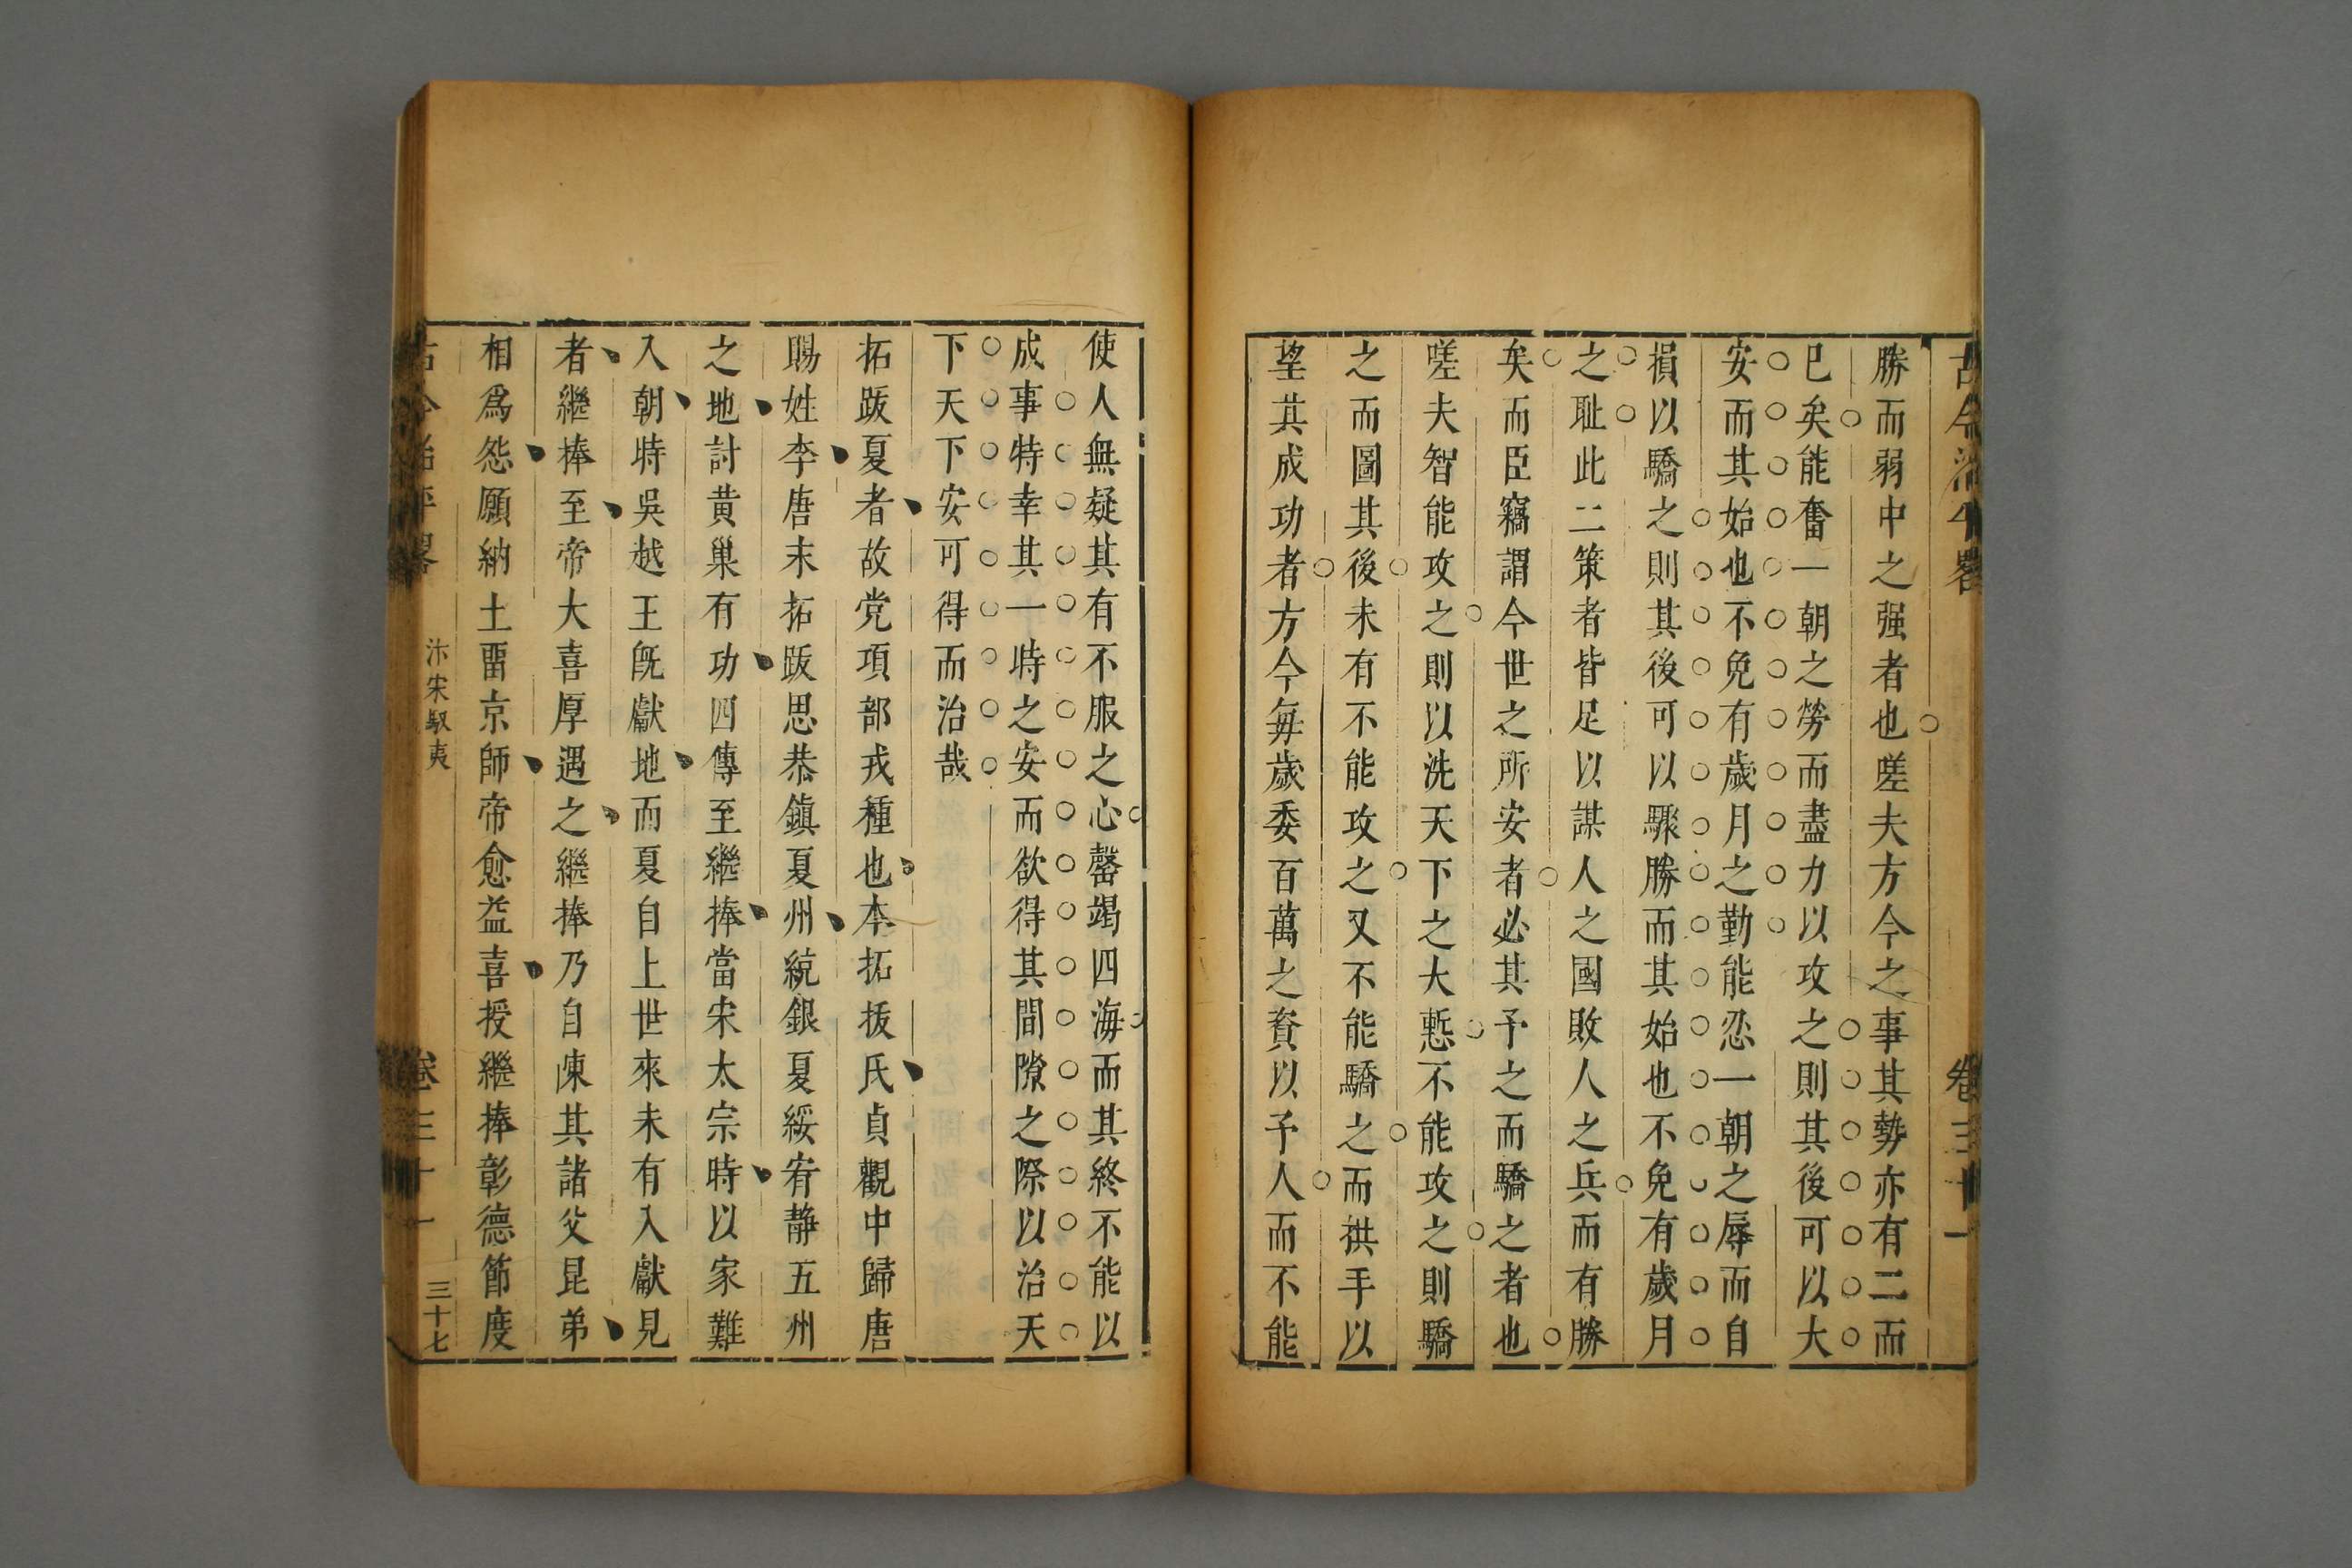 古今治平畧 卷三十一
勝而弱中之强者也嗟夫方今之事其勢亦有二而
已矣能奮一朝之勞而盡力以攻之則其後可以大
安而其始也不免有歲月之勤能忍一朝之辱而自
損以驕之則其後可以驟勝而其始也不免有歲月
之耻此二策者皆足以謀人之國敗人之兵而有勝
矣而臣竊謂今世之所安者必其予之而驕之者也
嗟夫智能攻之則以洗天下之大慙不能攻之則驕
之而圖其後未有不能攻之又不能驕之而拱手以
望其成功者方今每歲委百萬之資以予人而不能
使人無疑其有不服之心罄竭四海而其終不能以
成事特幸其一時之安而欲得其間隙之際以治天
下天下安可得而治哉
拓跋夏者故党項部戎種也本拓拔氏貞觀中歸唐
賜姓李唐末拓跋思恭鎮夏州統銀夏綏宥静五州
之地討黄巢有功四傳至繼捧當宋太宗時以家難
入朝時吳越王旣獻地而夏自上世來未有入獻見
者繼捧至帝大喜厚遇之繼捧乃自陳其諸父昆弟
相爲怨願納土畱京師帝愈益喜授繼捧彰德節度
古今治平畧 汴宋馭夷 卷三十一 三十七